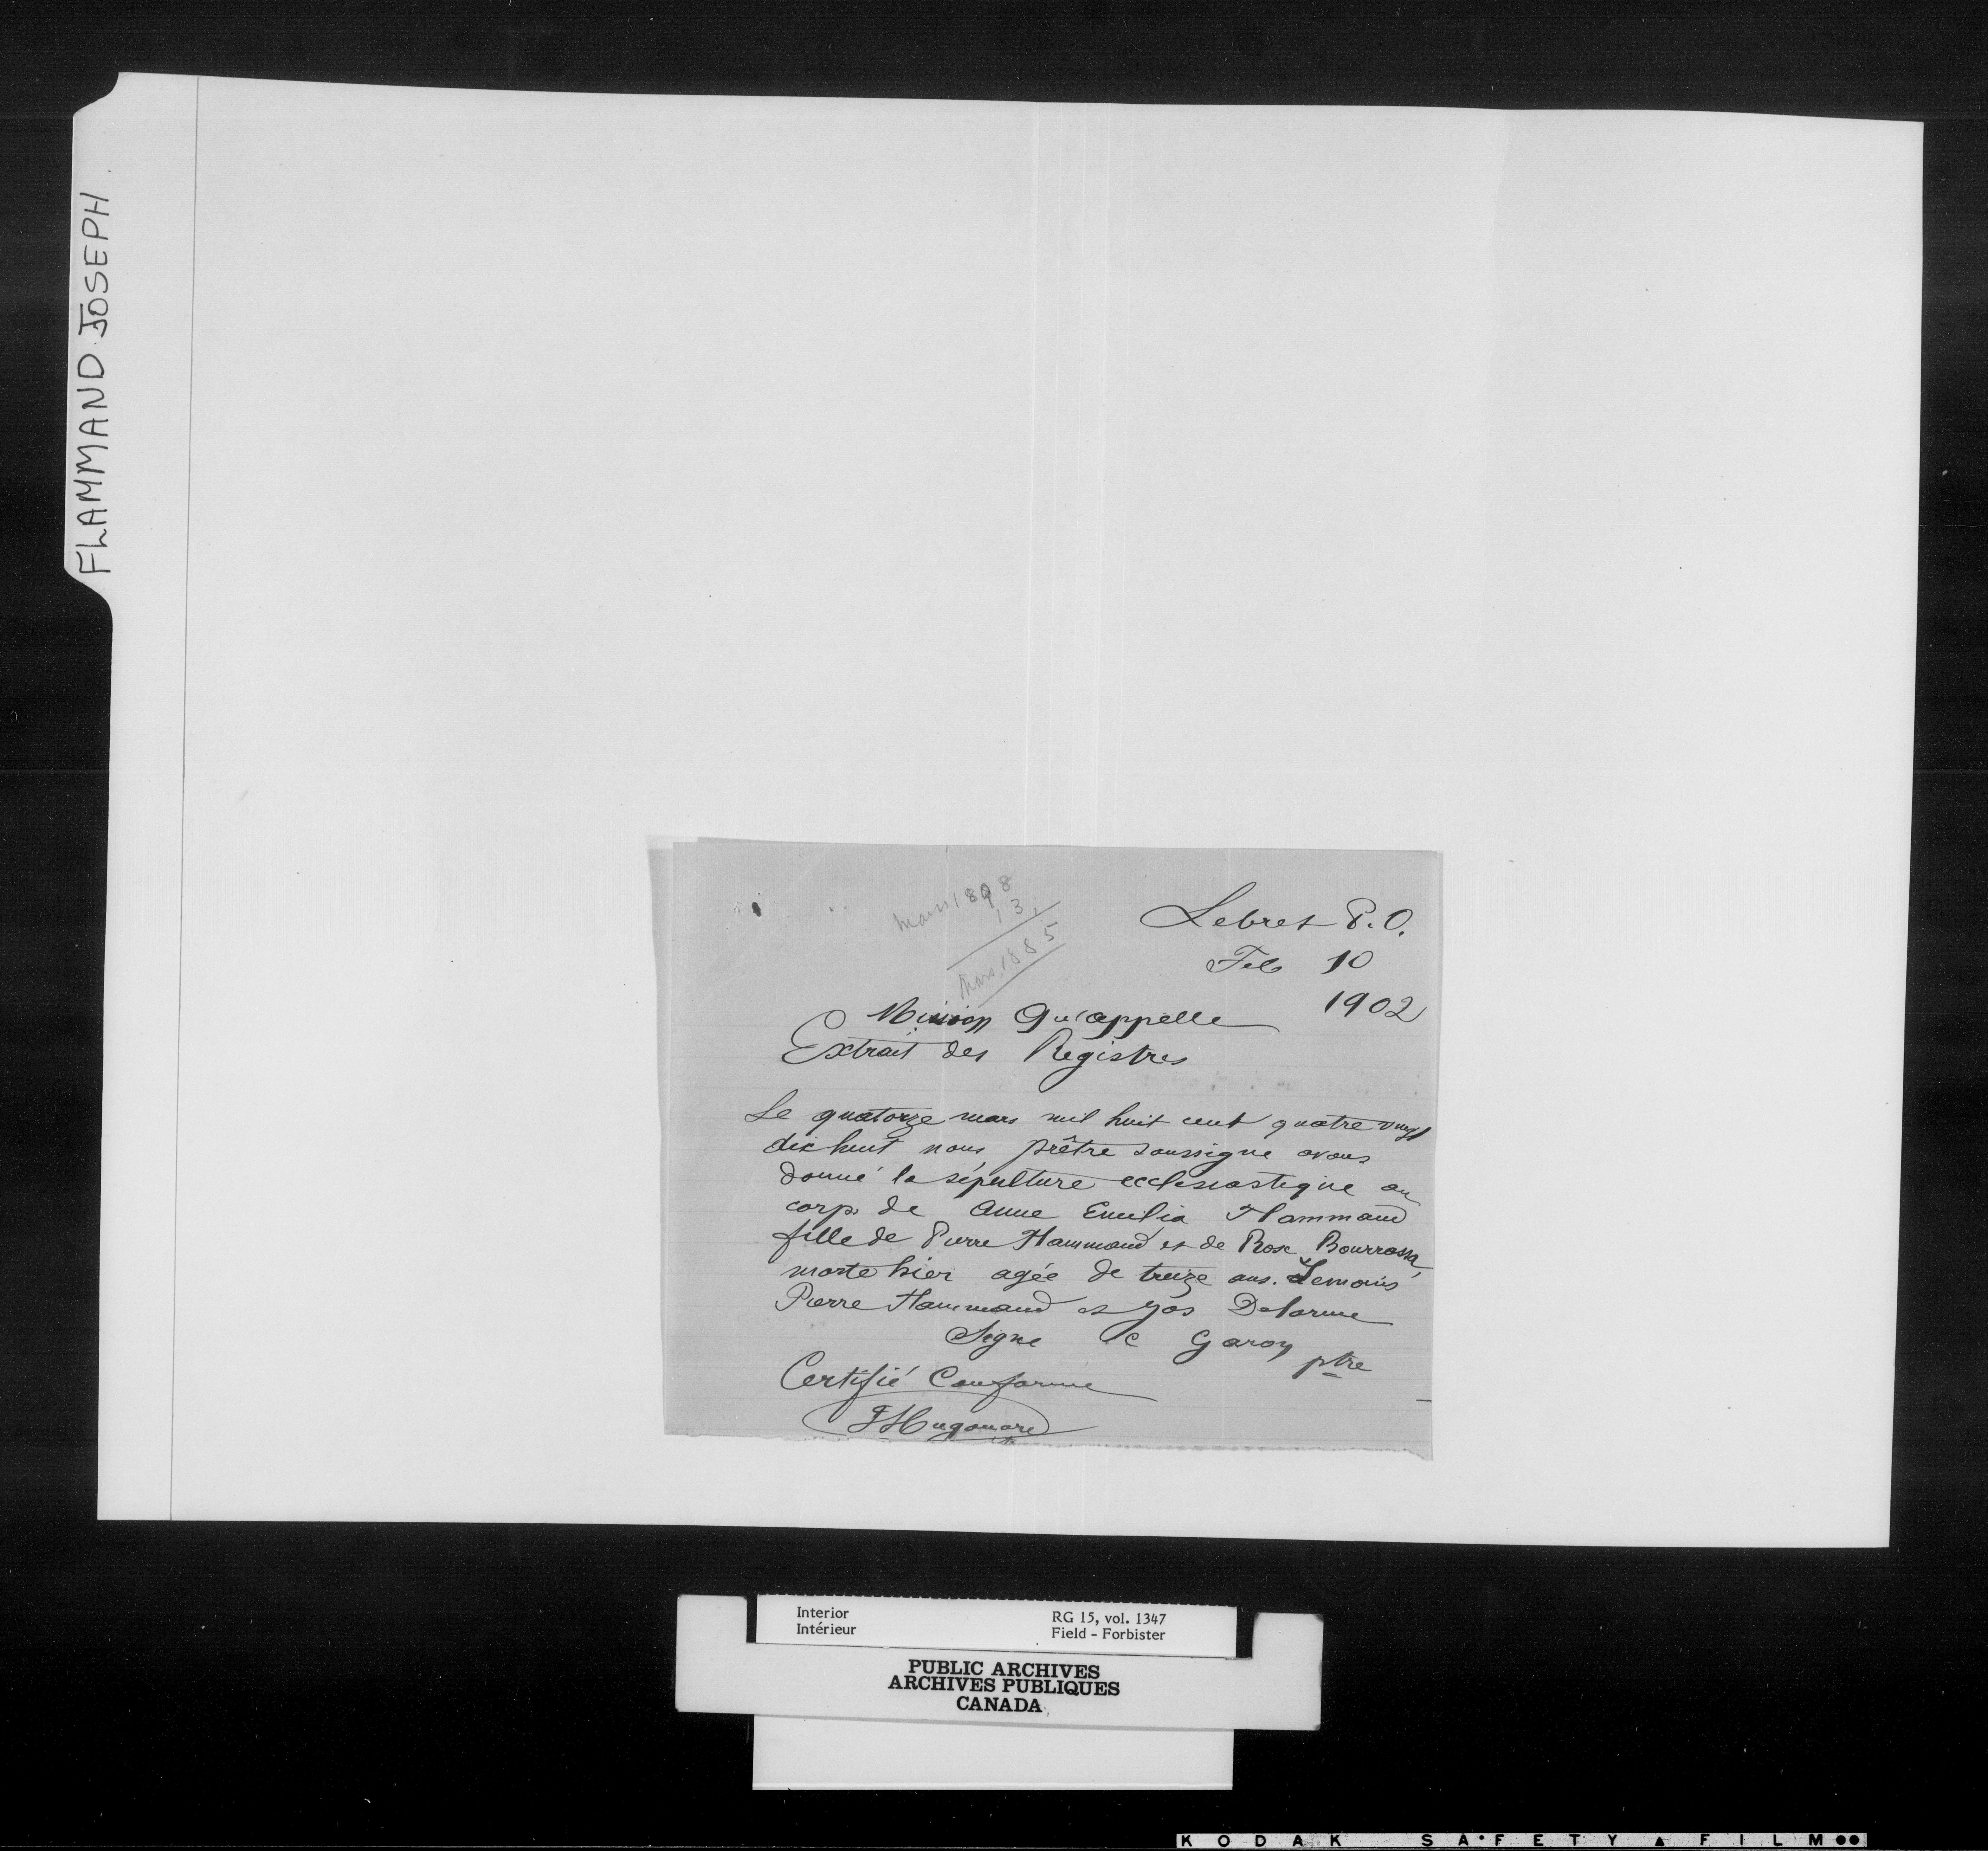 FLAMMAND JOSEPH
Mars 1898
13
Mars 1885
Lebret P.O.
Feb 10
1902
Mission Qu'appelle
Extrait des Registres
Le quatorze mars mil huit cent quatre vingt
dix huit nous, prêtre soussigne avons
donné la sépulture ecclesiastique au
corps de Anne Emelia Flammand
fille de Pierre Flammand et de Rose Bourrassa,
morte hier agée de treize ans. Temoins
Pierre Flammand et Jos Delorme
Signe C Garon ptre
Certifié Conforme
J Hugonard
Interior
Intérieur
RG 15, vol. 1347
Field - Forbister
PUBLIC ARCHIVES
ARCHIVES PUBLIQUES
CANADA
KODAK SAFETY FILM